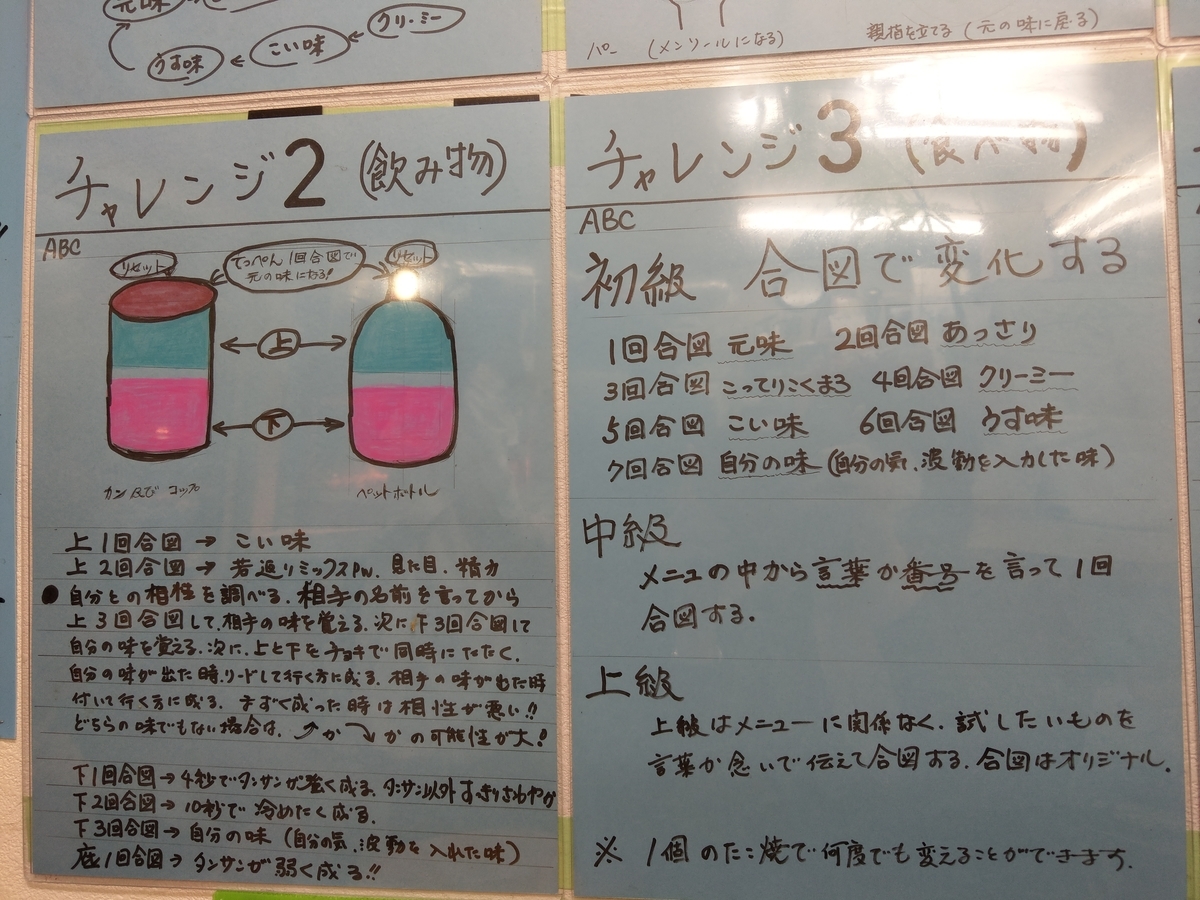 元味
うす味
こい味
クリーミー
パー (メンソールになる)
親指を立てる (元の味に戻る)
チャレンジ2 (飲み物)
ABC
リセット
てっぺん1回合図で
元の味になる!
リセット
上
下
カン及び コップ
ペットボトル
上1回合図 → こい味
上2回合図 → 若返りミックスPW. 見た目. 精力
●自分との相性を調べる. 相手の名前を言ってから
上3回合図して.相手の味を覚える. 次に下3回合図して
自分の味を覚える.次に.上と下をチョキで同時にたたく.
自分の味が出た時.リードして行く方に成る. 相手の味が出た時
付いて行く方に成る. まずく成った時は相性が悪い!!
どちらの味でもない場合は. か かの可能性が大!
下1回合図→4秒でタンサンが強く成る. タンサン以外すっきりさわやか
下2回合図→10秒で冷めたく成る.
下3回合図→自分の味 (自分の気.波動を入れた味)
底1回合図→タンサンが弱く成る!!
チャレンジ3 (食べ物)
ABC
初級 合図で変化する
1回合図 元味 2回合図 あっさり
3回合図 こってりこくまろ 4回合図 クリーミー
5回合図 こい味 6回合図 うす味
7回合図 自分の味 (自分の気.波動を入力した味)
中級
メニュの中から言葉か番号を言って1回
合図する.
上級
上級はメニューに関係なく. 試したいものを
言葉か念いで伝えて合図する. 合図はオリジナル.
※ 1個のたこ焼で何度でも変えることができます.